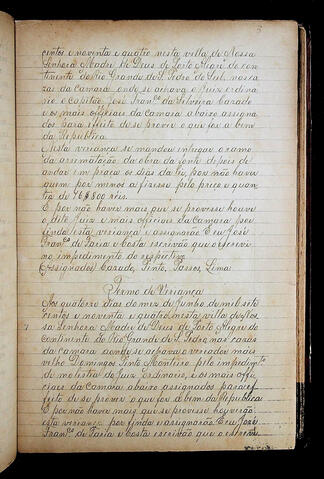 centos e noventa e quatro nesta villa de Nossa
Senhora Madre de Deus de Porto Alegre do con-
tinente do Rio Grande de S. Pedro do Sul, nas ca-
zas da camara onde se achava o Juiz ordina
rio o capitão José Franco da Silveira Cazado
e os mais officiaes da camara abaixo assigna
dos para effeito de se prover o que for a bem
da Republica
Nesta veriança se mandou entregar o ramo
da arrematação da obra da fonte depois de
andar em praça os dias da lei por não haver
quem por menos a fizesse pelo preço e quan
tia de 46$800 réis.
E por não haver mais que se provesse houve
o dito Juiz e mais officiaes da Camara por
finda esta veriança e assignarão. E eu José
Franco de Faria e Costa escrivão que o escrevi
no impedimento do respectivo
(Assignados) Cazado, Pinto, Passos, Lima.
Termo de Veriança
Aos quatorze dias do mez de Junho de mil sete
centos e noventa e quatro nesta villa de Nos
sa Senhora Madre de Deus de Porto Alegre do
continente do Rio Grande de S. Pedro, nas cazas
da camara aonde se achava o vereador mais
velho Domingos Pinto Monteiro pelo impedimto
de molestia do Juiz Ordinario, e os mais offi-
ciaes da camara abaixo assignados para ef
feito de se prover o que for a bem da Republica
E por não haver mais que se provesse houverão
esta veriança por finda e assignarão. E eu José
Franco de Faria e Costa escrivão que o escrevi